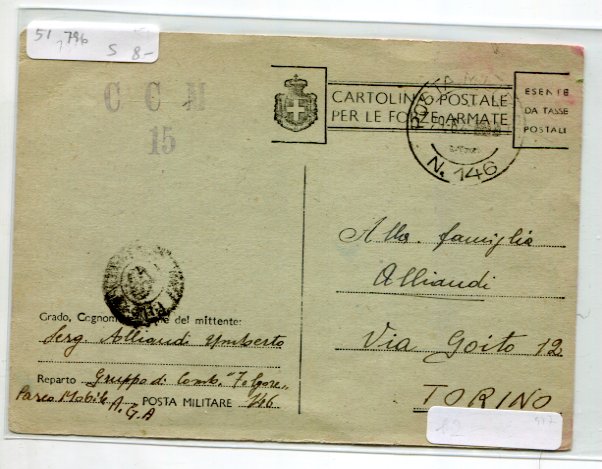 51 796
S 8-
C C M
15
CARTOLINA POSTALE
PER LE FORZE ARMATE
ESENTE
DA TASSE
POSTALI
POSTA MILITARE
N. 146
Alla famiglia
Alliaudi
Via Goito 12
TORINO
Grado, Cognome e del mittente:
Serg. Alliaudi Umberto
Reparto Gruppo di Comb. "Folgore"
Parco Mobile A.G.A POSTA MILITARE 146